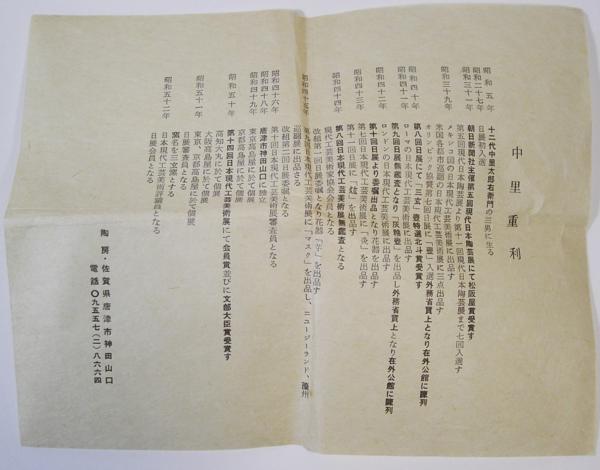 中里重利
昭和五年 十二代中里太郎右衛門の三男に生る
昭和二十七年 日展初入選
昭和三十一年 朝日新聞社主催第五回現代日本陶芸展にて松阪屋賞受賞す
第五回現代日本陶芸展より第十一回現代日本陶芸展まで七回入選す
メキシコ国の日本現代工芸美術展に出品す
昭和三十九年 米国各都市巡廻の日本現代工芸美術展に三点出品す
オリンピック協賛第七回日展に「壷」入選外務省買上となり在外公館に陳列
昭和四十年 第八回日展に「三玄」壷特選北斗賞受賞す
ローマの日本現代工芸美術展に出品す
昭和四十一年 第九回日展無鑑査となり「灰釉壷」を出品し外務省買上となり在外公館に陳列
ロンドンの日本現代工芸美術展に出品す
昭和四十二年 第十回日展より委嘱出品となり花器を出品す
第七回日本現代工芸美術展に「灸」を出品す
昭和四十三年 第十一回日展に「炆」を出品す
第八回日本現代工芸美術展無鑑査となる
昭和四十四年 現代工芸美術家協会会員となる
改組第一回日展委嘱となり花器「芋」を出品す
昭和四十五年 第九回日本現代工芸美術展に「マスク」を出品し、ニュージーランド、濠州
巡廻展に出品さる
改組第二回日展委嘱となる
昭和四十六年 第十回日本現代工芸美術展審査員となる
昭和四十八年 唐津市神田山口に独立
昭和四十九年 東京高島屋に於て個展
京都高島屋に於て個展
昭和五十年 第十四回日本現代工芸美術展にて会員賞並びに文部大臣賞受賞す
高知大丸にて個展
昭和五十一年 大阪高島屋に於て個展
東京・京都高島屋に於て個展
日展審査員となる
昭和五十二年 窯名を三玄窯とする
日本現代工芸美術評議員となる
日展会員となる
陶房・佐賀県唐津市神田山口
電話〇九五五七(二)八六六四